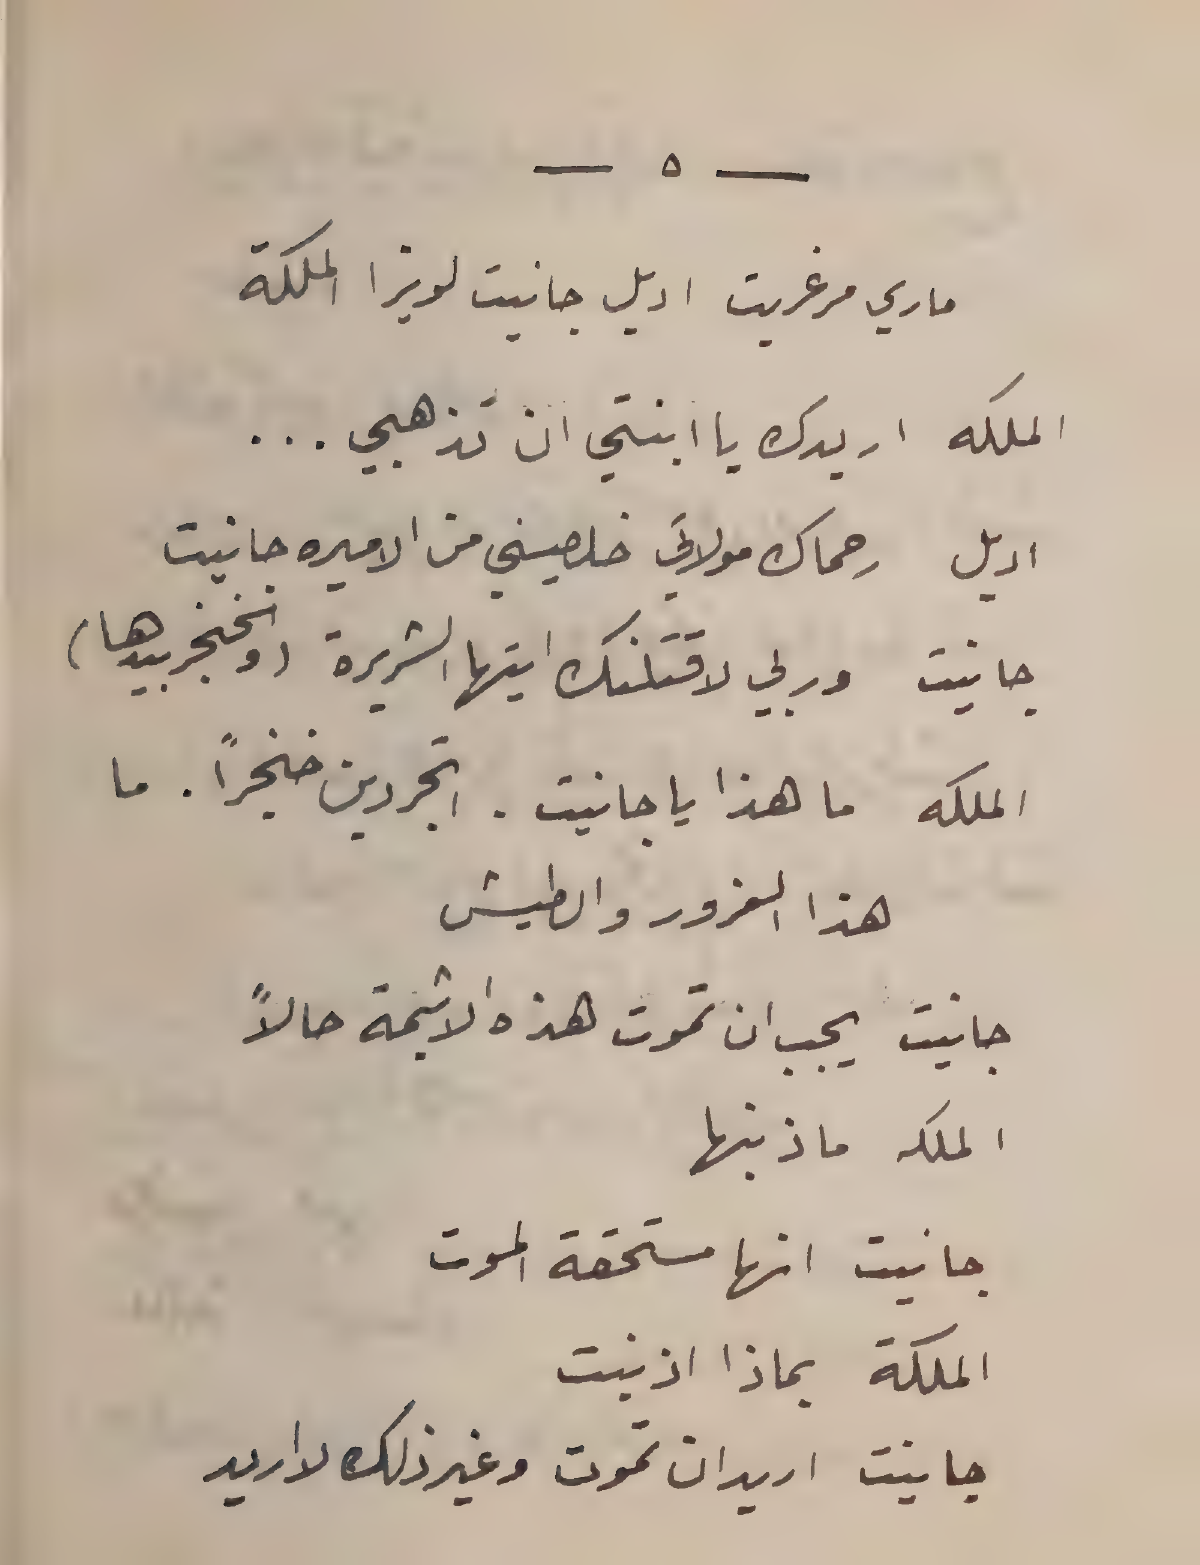 — ٥ —
ماري مرغريت اديل جانيت لويزا الملكة
الملكه اريدك يا ابنتي ان تذهبي ...
اديل رحماك مولاتي خلصيني من الاميره جانيت
جانيت وربي لاقتلنك ايتها الشريرة (والخنجر بيدها)
الملكه ما هذا يا جانيت . اتجردين خنجراً . ما
هذا الغرور والطيش
جانيت يجب ان تموت هذه الاثيمة حالاً
الملكه ما ذنبها
جانيت انها مستحقة الموت
الملكة بماذا اذنبت
جانيت اريد ان تموت وغير ذلك لا اريد